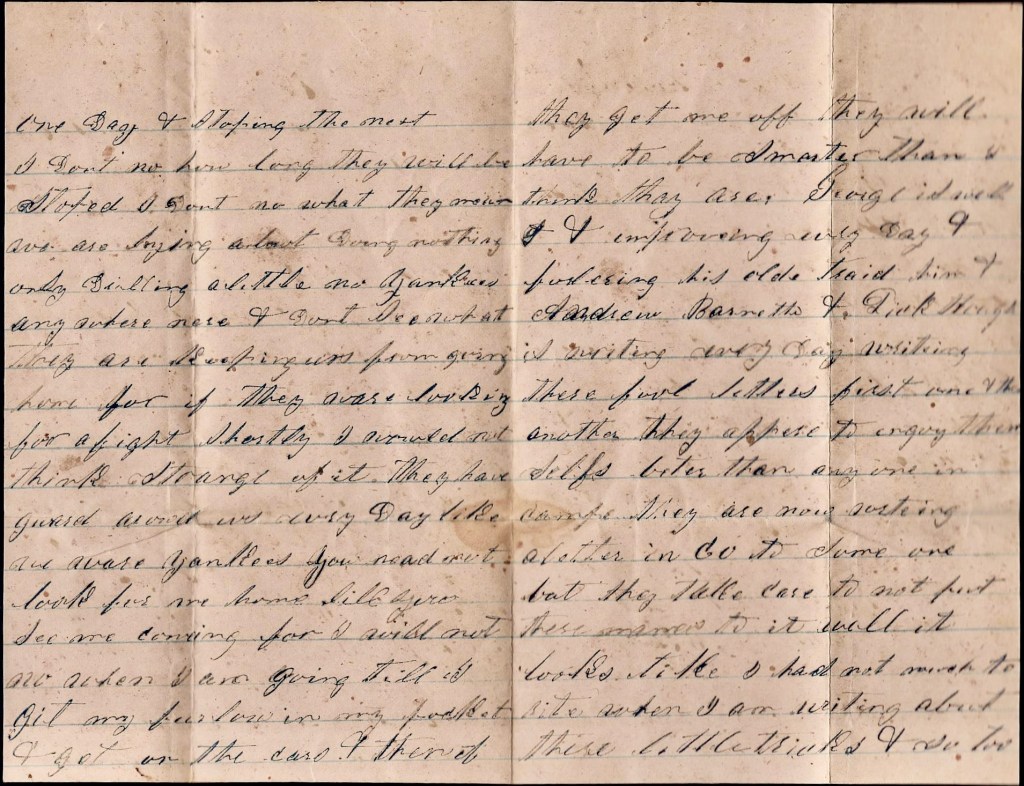 One Day & stoping the next
I Dont no how long they will be
Stoped I Dont no what they mean
we are lying about Doing nothing
only Drilling a little no Yankees
any where nere & Dont See what
they are Keeping us from going
home for if they ware looking
for a fight Shortly I would not
think Strange of it they have
guard around us evry Day like
we ware Yankees you nead not
look for me home till you
See me coming for I will not
no when I am going till I
git my furlow in my pocket
& get on the cars & then if
they get me off they will
have to be Smarter than I
think thay are. George is well
& improveing evry Day &
his olde traid him &
Andrew Barnett & Dick
is writing evry Day writing
these fool letters first one &
another they appere to enjoy them
Selfs beter than any one in
campe they are now writing
a letter in Co to Some one
but they take care to not put
there names to it well it
looks like I had not much to
rite when I am writing about
there little tricks & so too